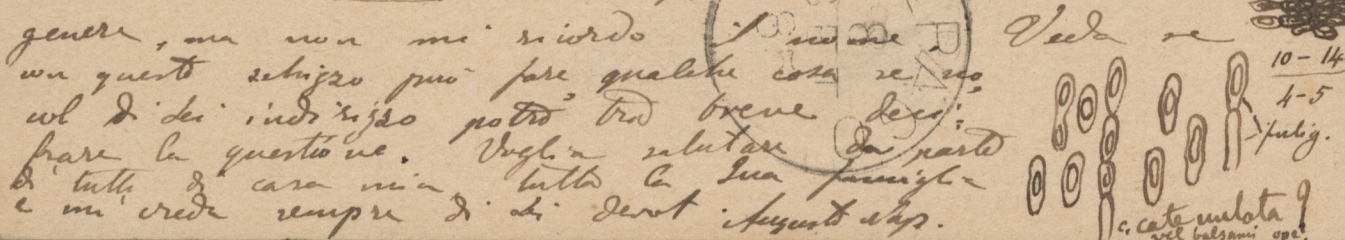 genere, ma non mi ricordo il nome. Veda se
con questo schizzo può fare qualche cosa se no
col di Lei indirizzo potrò tra breve deci-
frare la questione. Voglia salutare da parte
di tutti di casa mia tutta la Sua famiglia
e mi creda sempre di Lei devot. Augusto Nap.
10-14
4-5
fulig.
c. catenulata ?
vel balsami